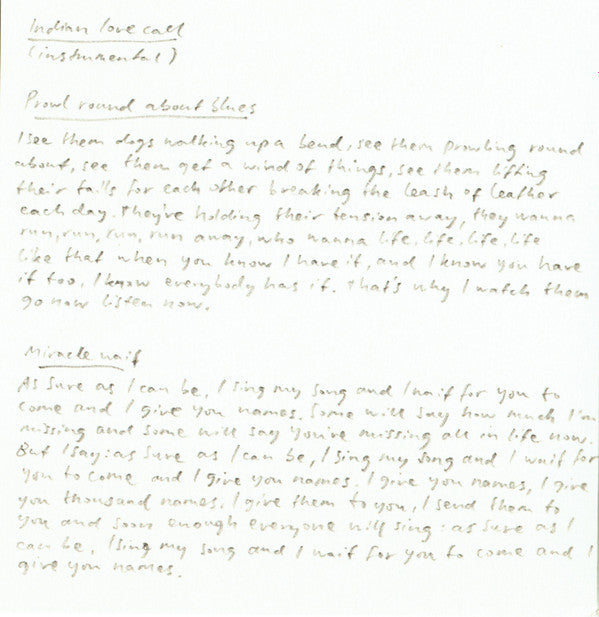 Indian love call
(instrumental)
Prowl round about blues
I see them dogs walking up a bend, see them prowling round
about, see them get a wind of things, see them lifting
their tails for each other breaking the leash of leather
each day. They're holding their tension away, they wanna
run, run, run, run away, who wanna life, life, life, life
like that when you know I have it, and I know you have
it too, I know everybody has it. That's why I watch them
go now listen now.
Miracle wait
As sure as I can be, I sing my song and I wait for you to
come and I give you names. Some will say how much I'm
missing and some will say you're missing all in life now.
But I say: as sure as I can be, I sing my song and I wait for
you to come and I give you names. I give you names, I give
you thousand names. I give them to you, I send them to
you and soon enough everyone will sing: as sure as I
can be, I sing my song and I wait for you to come and I
give you names.